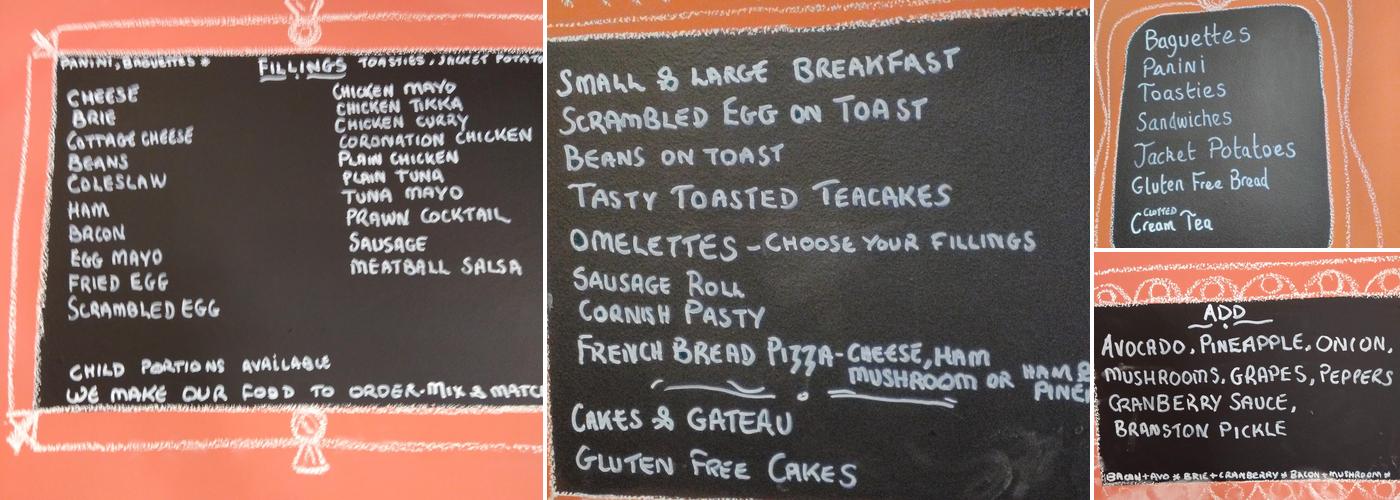 PANINI, BAGUETTES &
FILLINGS TOASTIES, JACKET POTATO
CHEESE
BRIE
COTTAGE CHEESE
BEANS
COLESLAW
HAM
BACON
EGG MAYO
FRIED EGG
SCRAMBLED EGG
CHICKEN MAYO
CHICKEN TIKKA
CHICKEN CURRY
CORONATION CHICKEN
PLAIN CHICKEN
PLAIN TUNA
TUNA MAYO
PRAWN COCKTAIL
SAUSAGE
MEATBALL SALSA
CHILD PORTIONS AVAILABLE
WE MAKE OUR FOOD TO ORDER-MIX & MATCH
SMALL & LARGE BREAKFAST
SCRAMBLED EGG ON TOAST
BEANS ON TOAST
TASTY TOASTED TEACAKES
OMELETTES - CHOOSE YOUR FILLINGS
SAUSAGE ROLL
CORNISH PASTY
FRENCH BREAD PIZZA - CHEESE, HAM
MUSHROOM OR HAM &
PINE
CAKES & GATEAU
GLUTEN FREE CAKES
Baguettes
Panini
Toasties
Sandwiches
Jacket Potatoes
Gluten Free Bread
CLOTTED
Cream Tea
ADD
AVOCADO, PINEAPPLE, ONION,
MUSHROOMS, GRAPES, PEPPERS
CRANBERRY SAUCE,
BRANSTON PICKLE
BACON+AVO * BRIE+CRANBERRY * BACON+MUSHROOM *